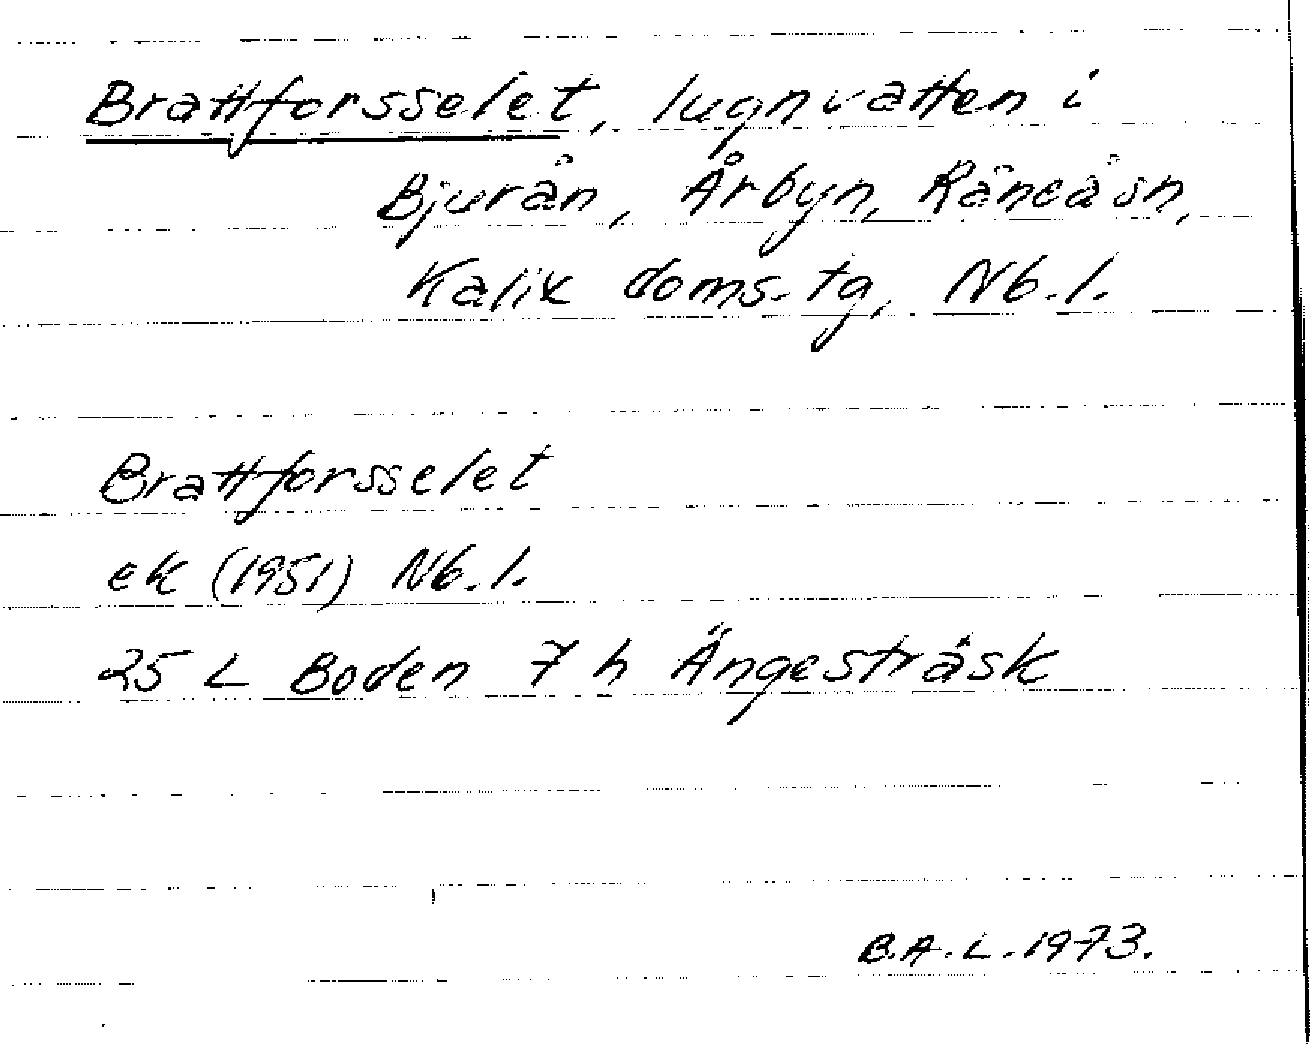 Brattforsselet, lugnvatten i
Bjurån, Årbyn, Råneå sn,
Kalix doms.tg, Nb.l.
Brattforsselet
ek (1951) Nb.l.
25 L Boden 7 h Ängesträsk
B.A.L. 1973.